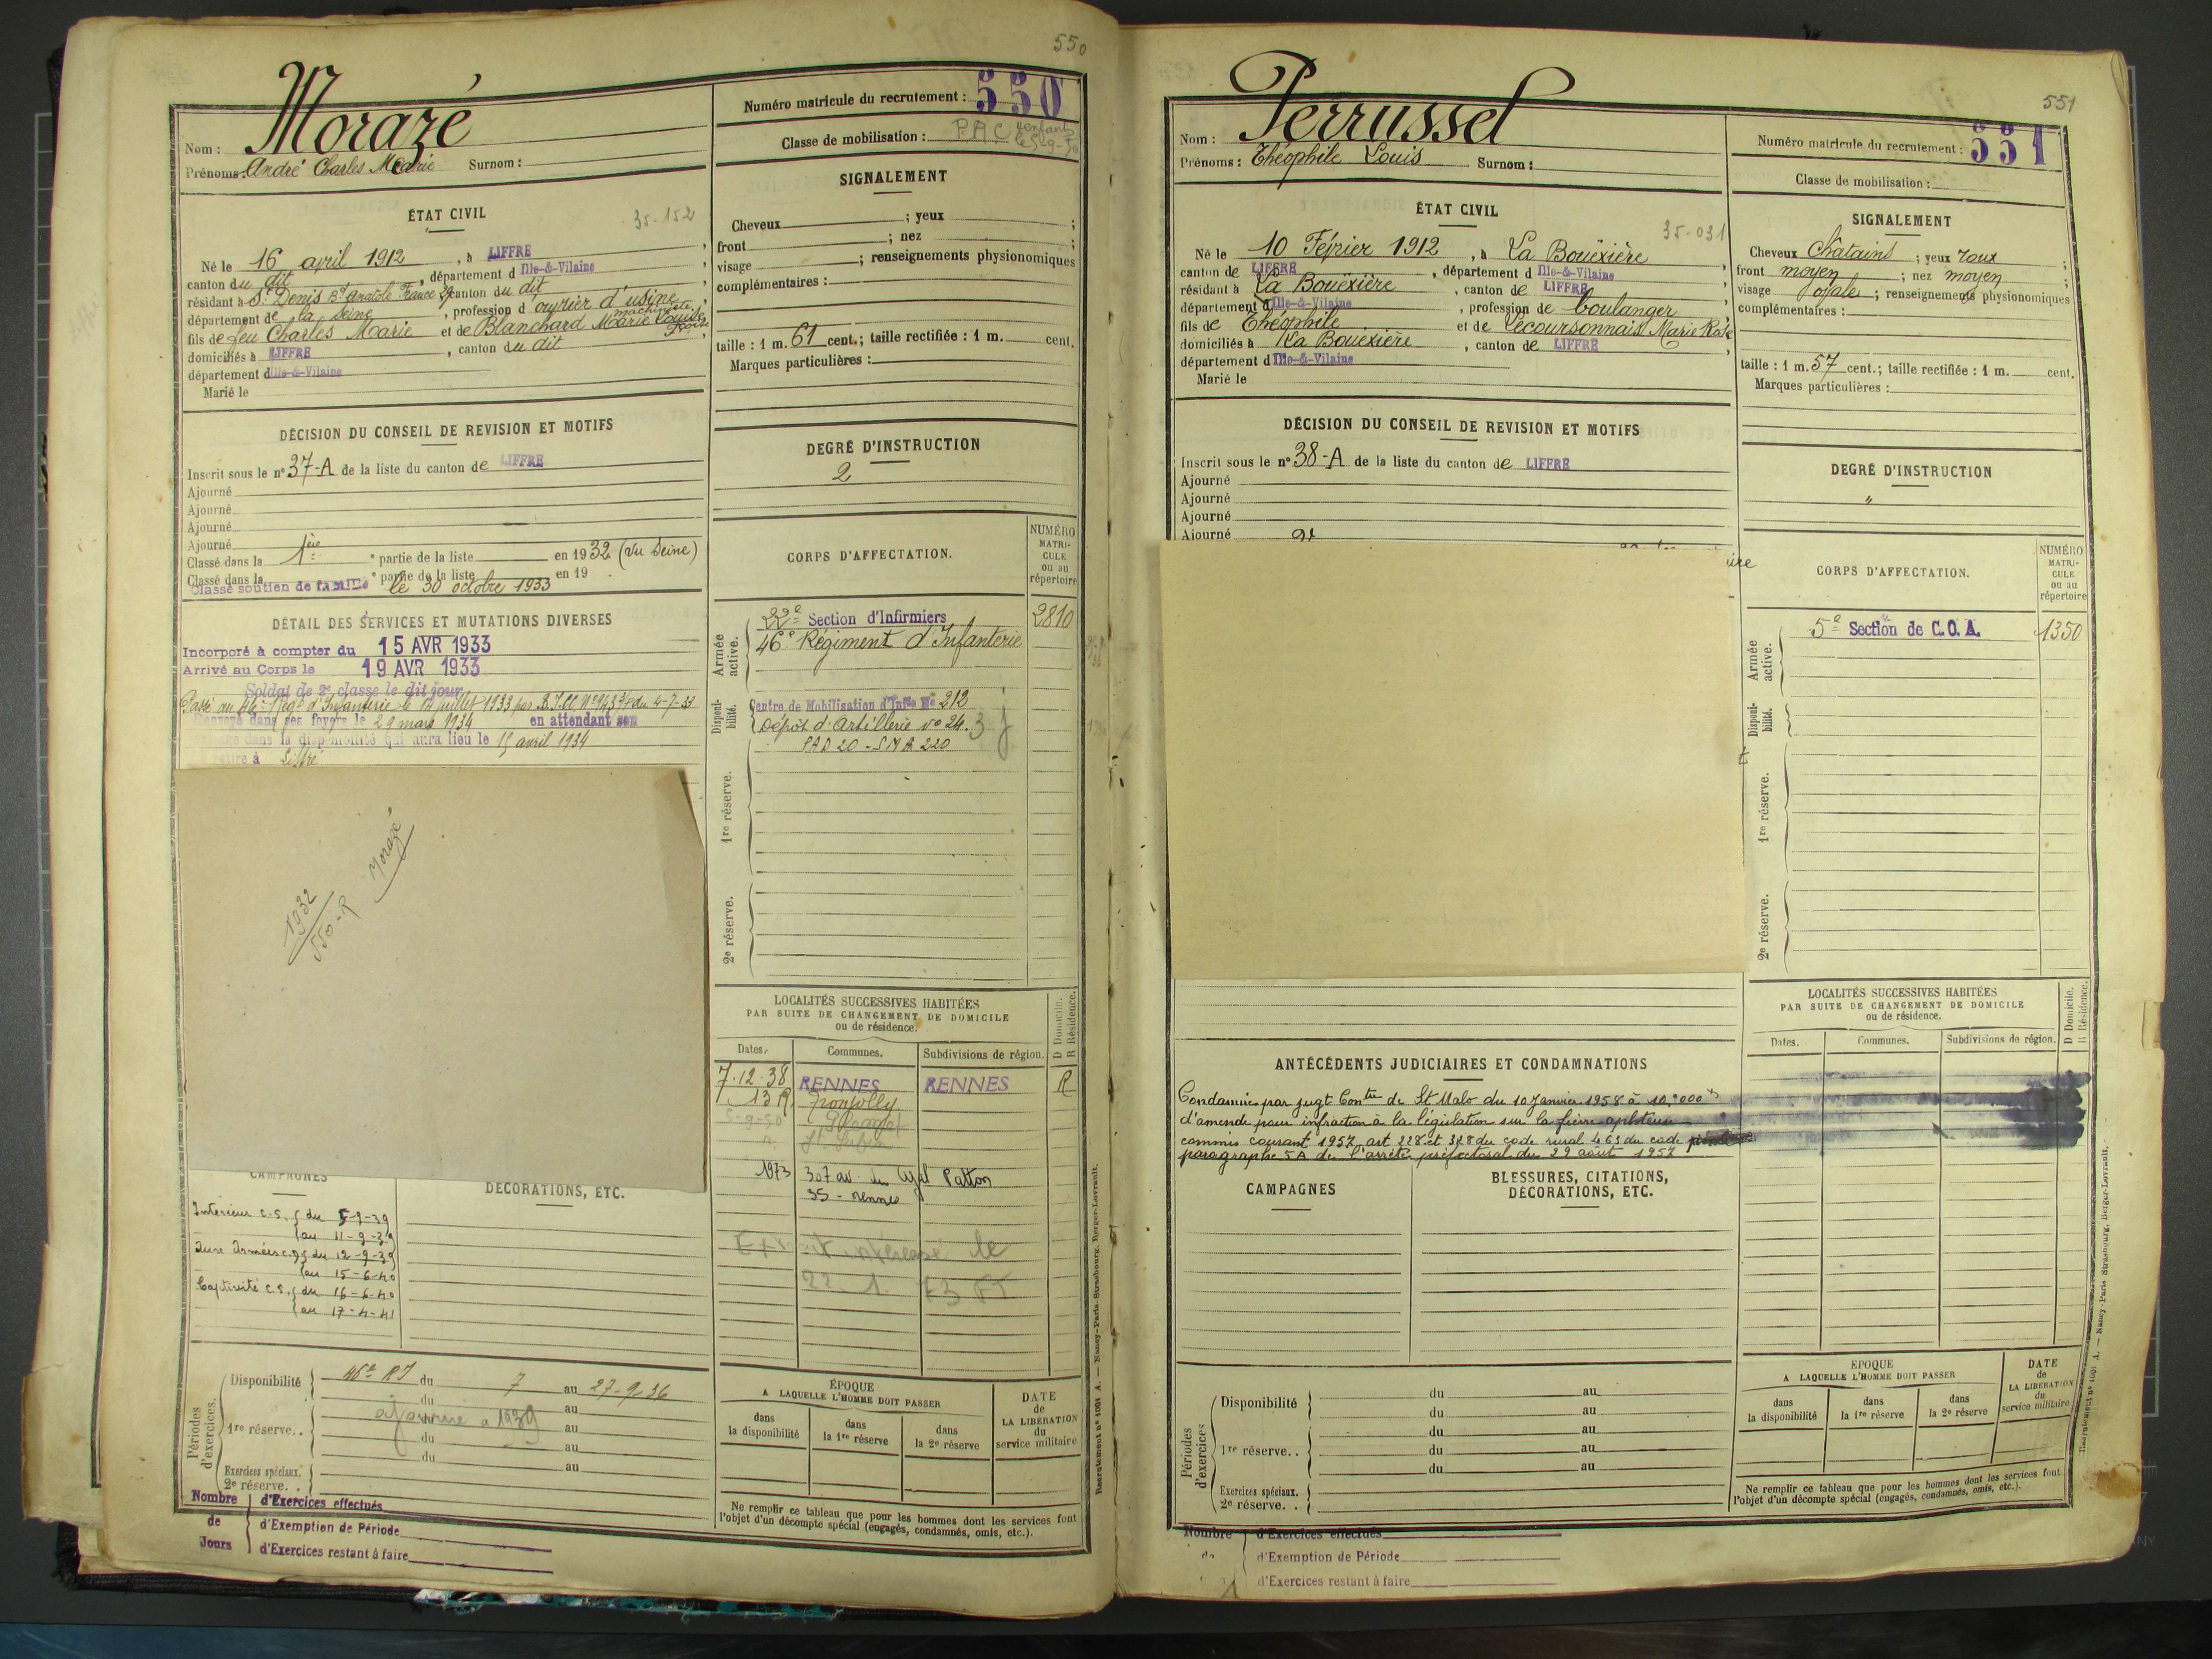 550
Nom : Morazé
Prénoms : André Charles Marie Surnom :
Numéro matricule du recrutement : 550
Classe de mobilisation : P.A.C
ÉTAT CIVIL
35-152
Né le 16 avril 1912, à LIFFRE
canton du dit, département d Ille-&-Vilaine
résidant à St Denis Bd Anatole France, canton du dit
département de la Seine, profession d'ouvrier d'usine
fils de feu Charles Marie et de Blanchard Marie Louise
domiciliés à LIFFRE, canton du dit
département d Ille-&-Vilaine
Marié le
SIGNALEMENT
Cheveux ; yeux ;
front ; nez ;
visage ; renseignements physionomiques
complémentaires :
taille : 1 m. 61 cent.; taille rectifiée : 1 m. cent.
Marques particulières :
DÉCISION DU CONSEIL DE REVISION ET MOTIFS
Inscrit sous le n° 37-A de la liste du canton de LIFFRE
Ajourné
Ajourné
Ajourné
Ajourné
Classé dans la 1ère partie de la liste en 1932 (du Seine)
Classé dans la partie de la liste en 19 .
Classé soutien de famille le 30 octobre 1933
DEGRÉ D'INSTRUCTION
2
DÉTAIL DES SERVICES ET MUTATIONS DIVERSES
Incorporé à compter du 15 AVR 1933
Arrivé au Corps le 19 AVR 1933
Soldat de 2e classe le dit jour
Passé au 46e Régt d'Infanterie le juillet 1933 par du 4-7-33
Renvoyé dans ses foyers le 29 mars 1934 en attendant son
dans la disponibilité qui aura lieu le 15 avril 1934
retire à Liffré
1932
550-R
Morazé
CORPS D'AFFECTATION.
NUMÉRO MATRI- CULE ou au répertoire
Armée active.
22e Section d'Infirmiers 2810
46e Régiment d'Infanterie
Disponi- bilité.
Centre de Mobilisation d'Infie No 212
Dépôt d'Artillerie n° 24.
1re réserve.
2e réserve.
LOCALITÉS SUCCESSIVES HABITÉES
PAR SUITE DE CHANGEMENT DE DOMICILE
ou de résidence.
D Domicile.
R Résidence.
Dates. Communes. Subdivisions de région.
7.12.38 RENNES RENNES R
5-9-50
1973 307 av du Patton
35 - rennes
intéressé le
22 1 73
CAMPAGNES
DÉCORATIONS, ETC.
Intérieur C.S. du 5-9-39
au 11-9-39
Aux Armées du 12-9-39
au 15-6-40
Captivité C.S. du 16-6-40
au 17-4-41
Périodes d'exercices.
Disponibilité 46e RI du 7 au 27-9-36
du au
ajourné à 1939
1re réserve.. du au
du au
du au
Exercices spéciaux.
2e réserve. .
Nombre de Jours
d'Exercices effectués
d'Exemption de Période
d'Exercices restant à faire
ÉPOQUE
A LAQUELLE L'HOMME DOIT PASSER
dans la disponibilité
dans la 1re réserve
dans la 2e réserve
DATE de LA LIBÉRATION du service militaire
Ne remplir ce tableau que pour les hommes dont les services font
l'objet d'un décompte spécial (engagés, condamnés, omis, etc.).
Recrutement n° 1001 A. — Nancy-Paris-Strasbourg, Berger-Levrault.
551
Nom : Perrussel
Prénoms : Théophile Louis Surnom :
Numéro matricule du recrutement : 551
Classe de mobilisation :
ÉTAT CIVIL
35-031
Né le 10 Février 1912, à La Bouëxière
canton de LIFFRE, département d Ille-&-Vilaine
résidant à La Bouëxière, canton de LIFFRE
département d Ille-&-Vilaine, profession de boulanger
fils de Théophile et de Lecoursonnais Marie Rose
domiciliés à La Bouëxière, canton de LIFFRE
département d Ille-&-Vilaine
Marié le
SIGNALEMENT
Cheveux Chatains ; yeux roux ;
front moyen ; nez moyen ;
visage ovale ; renseignements physionomiques
complémentaires :
taille : 1 m. 57 cent.; taille rectifiée : 1 m. cent.
Marques particulières :
DÉCISION DU CONSEIL DE REVISION ET MOTIFS
Inscrit sous le n° 38-A de la liste du canton de LIFFRE
Ajourné
Ajourné
Ajourné
Ajourné
DEGRÉ D'INSTRUCTION
"
CORPS D'AFFECTATION.
NUMÉRO MATRI- CULE ou au répertoire
Armée active.
5e Section de C.O.A. 1350
Disponi- bilité.
1re réserve.
2e réserve.
LOCALITÉS SUCCESSIVES HABITÉES
PAR SUITE DE CHANGEMENT DE DOMICILE
ou de résidence.
D Domicile.
R Résidence.
Dates. Communes. Subdivisions de région.
ANTÉCÉDENTS JUDICIAIRES ET CONDAMNATIONS
Condamné par jugt Contre de St Malo du 10 Janvier 1958 à 10.000
d'amende pour infraction à la législation sur la fièvre aphteuse
commis courant 1957 art 228 et 328 du code rural 463 du code
paragraphe 5A de l'arrêté préfectoral du 29 août 1957
CAMPAGNES
BLESSURES, CITATIONS,
DÉCORATIONS, ETC.
Périodes d'exercices
Disponibilité du au
du au
1re réserve.. du au
du au
du au
Exercices spéciaux.
2e réserve. .
Nombre
d'Exercices effectués
d'Exemption de Période
d'Exercices restant à faire
EPOQUE
A LAQUELLE L'HOMME DOIT PASSER
dans la disponibilité
dans la 1re réserve
dans la 2e réserve
DATE de LA LIBÉRATION du service militaire
Ne remplir ce tableau que pour les hommes dont les services font
l'objet d'un décompte spécial (engagés, condamnés, omis, etc.).
Recrutement n° 1001 A. — Nancy-Paris-Strasbourg, Berger-Levrault.